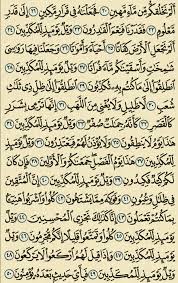 أَلَمْ نَخْلُقكُّم مِّن مَّآءٍ مَّهِينٍ ٢٠ فَجَعَلْنَٰهُ فِى قَرَارٍ مَّكِينٍ ٢١ إِلَىٰ قَدَرٍ
مَّعْلُومٍ ٢٢ فَقَدَرْنَا فَنِعْمَ ٱلْقَٰدِرُونَ ٢٣ وَيْلٌ يَوْمَئِذٍ لِّلْمُكَذِّبِينَ ٢٤
أَلَمْ نَجْعَلِ ٱلْأَرْضَ كِفَاتًا ٢٥ أَحْيَآءً وَأَمْوَٰتًا ٢٦ وَجَعَلْنَا فِيهَا رَوَٰسِىَ
شَٰمِخَٰتٍ وَأَسْقَيْنَٰكُم مَّآءً فُرَاتًا ٢٧ وَيْلٌ يَوْمَئِذٍ لِّلْمُكَذِّبِينَ ٢٨
ٱنطَلِقُوٓا۟ إِلَىٰ مَا كُنتُم بِهِۦ تُكَذِّبُونَ ٢٩ ٱنطَلِقُوٓا۟ إِلَىٰ ظِلٍّ ذِى ثَلَٰثِ
شُعَبٍ ٣٠ لَّا ظَلِيلٍ وَلَا يُغْنِى مِنَ ٱللَّهَبِ ٣١ إِنَّهَا تَرْمِى بِشَرَرٍ
كَٱلْقَصْرِ ٣٢ كَأَنَّهُۥ جِمَٰلَتٌ صُفْرٌ ٣٣ وَيْلٌ يَوْمَئِذٍ لِّلْمُكَذِّبِينَ ٣٤
هَٰذَا يَوْمُ لَا يَنطِقُونَ ٣٥ وَلَا يُؤْذَنُ لَهُمْ فَيَعْتَذِرُونَ ٣٦ وَيْلٌ يَوْمَئِذٍ
لِّلْمُكَذِّبِينَ ٣٧ هَٰذَا يَوْمُ ٱلْفَصْلِ جَمَعْنَٰكُمْ وَٱلْأَوَّلِينَ ٣٨ فَإِن كَانَ
لَكُمْ كَيْدٌ فَكِيدُونِ ٣٩ وَيْلٌ يَوْمَئِذٍ لِّلْمُكَذِّبِينَ ٤٠ إِنَّ ٱلْمُتَّقِينَ
فِى ظِلَٰلٍ وَعُيُونٍ ٤١ وَفَوَٰكِهَ مِمَّا يَشْتَهُونَ ٤٢ كُلُوا۟ وَٱشْرَبُوا۟ هَنِيٓـًٔۢا
بِمَا كُنتُمْ تَعْمَلُونَ ٤٣ إِنَّا كَذَٰلِكَ نَجْزِى ٱلْمُحْسِنِينَ ٤٤ وَيْلٌ يَوْمَئِذٍ
لِّلْمُكَذِّبِينَ ٤٥ كُلُوا۟ وَتَمَتَّعُوا۟ قَلِيلًا إِنَّكُم مُّجْرِمُونَ ٤٦ وَيْلٌ يَوْمَئِذٍ
لِّلْمُكَذِّبِينَ ٤٧ وَإِذَا قِيلَ لَهُمُ ٱرْكَعُوا۟ لَا يَرْكَعُونَ ٤٨
وَيْلٌ يَوْمَئِذٍ لِّلْمُكَذِّبِينَ ٤٩ فَبِأَىِّ حَدِيثٍۭ بَعْدَهُۥ يُؤْمِنُونَ ٥٠